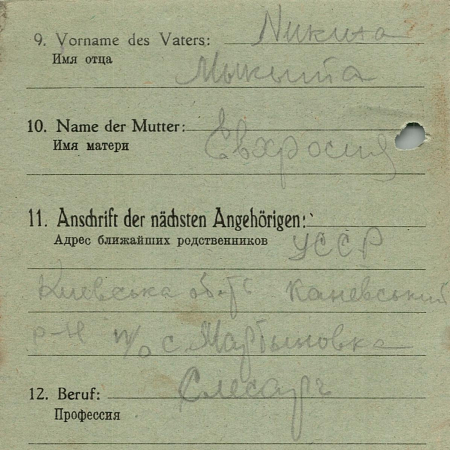 9. Vorname des Vaters: Никита
Имя отца Мыкыта
10. Name der Mutter:
Имя матери Евхросия
11. Anschrift der nächsten Angehörigen:
Адрес ближайших родственников УССР
Киевська об-ть Каневський
р-н п/о с. Мартыновка
12. Beruf: Слесарь
Профессия